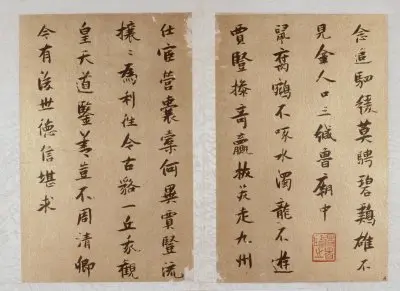 駟緩莫騁碧鷄雄不
見金人口三緘魯廟中
鼠腐鵷不啄水濁龍不遊
賈豎操奇贏走九州
仕宦營囊橐何異賈豎流
攘〻為利往今古貉一丘我觀
皇天道鑒善豈不周清卿
今有後世德信堪求